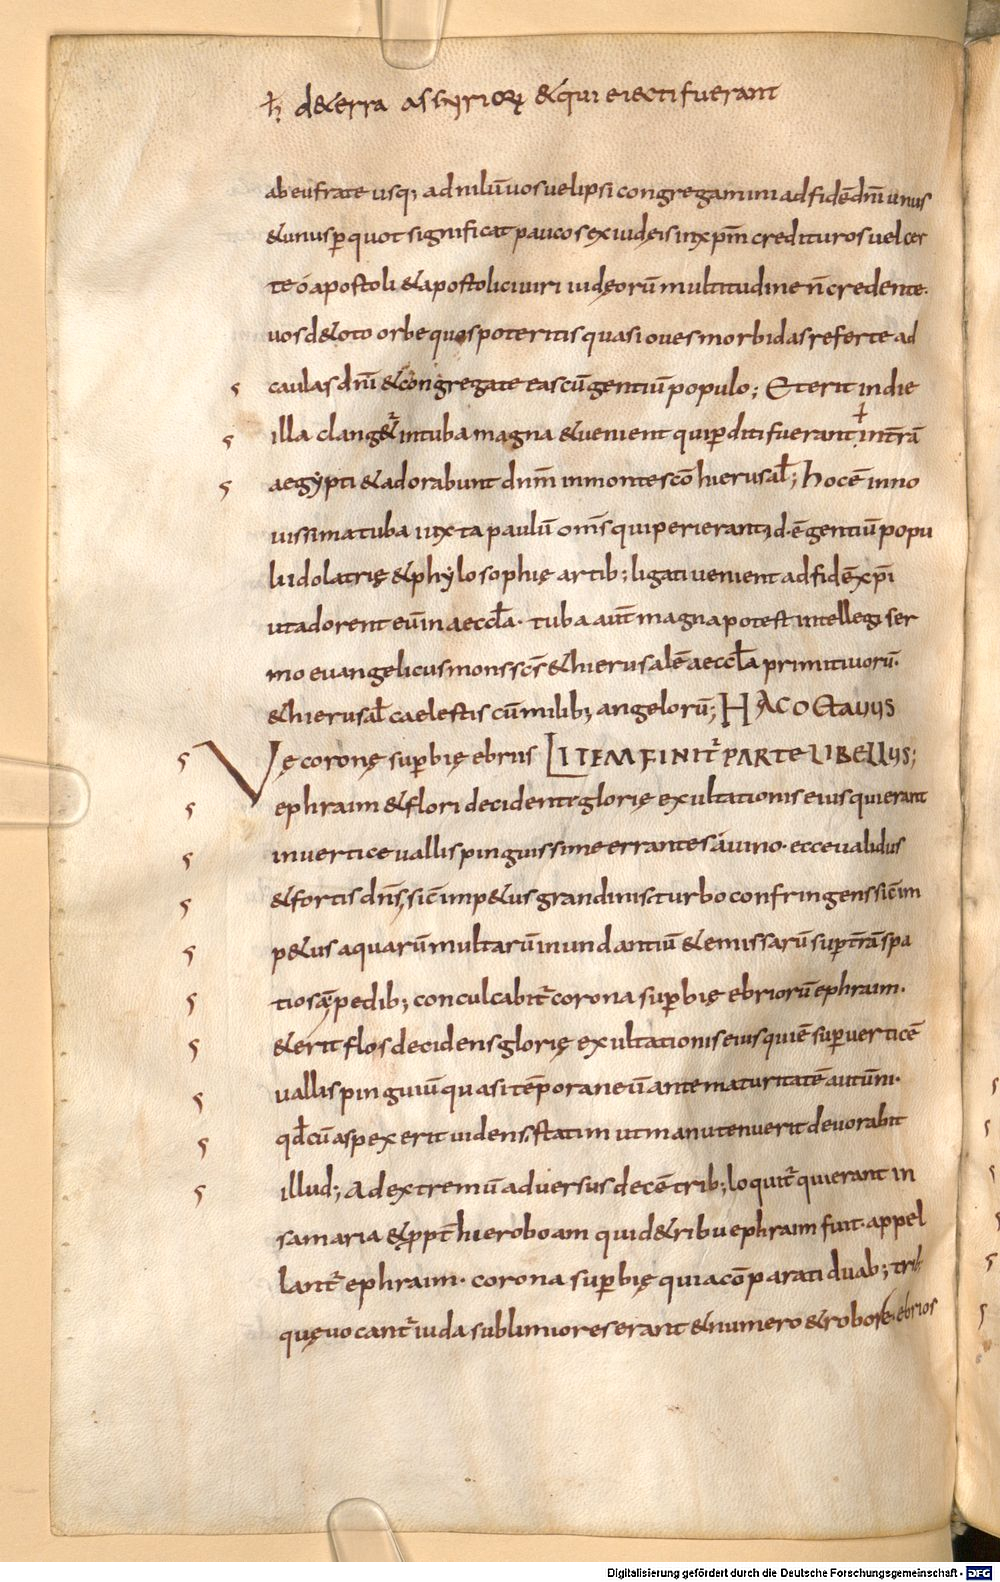 ħ de terra assyrioꝝ & qui eiecti fuerant
ab eufrate usq; ad nilū uos uel ipsi congregamini ad fidē dn̄i unus
& unus ꝑ quot significat paucos ex iudęis in xp̄m credituros uel cer
te ó apostoli & apostolici uiri iudęorū multitudine n̄ credente·
uos d& oto orbe quos poteritis quasi oues morbidas referte ad
caulas dn̄i & congregate eas cū gentiū populo; Et erit in die
illa clang&ur in tuba magna & uenient qui ꝑditi fuerant in tr̄a
aegypti & adorabunt dnm̄ in monte sc̄o hierusal̄; Hoc ē in no
uissima tuba iuxta paulū om̄s qui perierant, id·ē gentiū popu
li idolatrię & phylosophię artib; ligati uenient ad fidē xp̄i
ut adorent eū in aeccl̄a· tuba aut̄ magna potest intellegi ser
mo euangelicus mons sc̄s & hierusalē aeccl̄a primitiuorū·
& hierusal̄ caelestis cū milib; angelorū; HAC OCtauus
Vę coronę suꝑbię ebriis LITEM FINIT̄ PARTE LIBELLUS;
ephraim & flori decidente glorię exultationis eius qui erant
in uertice uallis pinguissime errantes á uino· ecce ualidus
& fortis dn̄s, sic̄ imp&us grandinis: turbo confringens sic̄ im
p&us aquarū multarū inundantiū & emissarū suꝑ tr̄ā spa
tiosā, pedib; conculcabit̄ corona suꝑbię ebriorū ephraim·
& erit flos decidens glorię exultationis eius qui ē suꝑ uerticē
uallis pinguiū quasi tēporaneū ante maturitatē autūni·
qd̄ cū aspexerit uidens, statim ut manu tenuerit deuorabit
illud; Ad extremū aduersus decē trib; loquit̄ qui erant in
samaria & ꝓpt̄ hieroboam qui d& ribu ephraim fuit· appel
lant̄ ephraim· corona suꝑbię quia cōparati duab; trib;
quę uocant̄ iuda sublimiores erant & numero & robore· ebrios
Digitalisierung gefördert durch die Deutsche Forschungsgemeinschaft - DFG